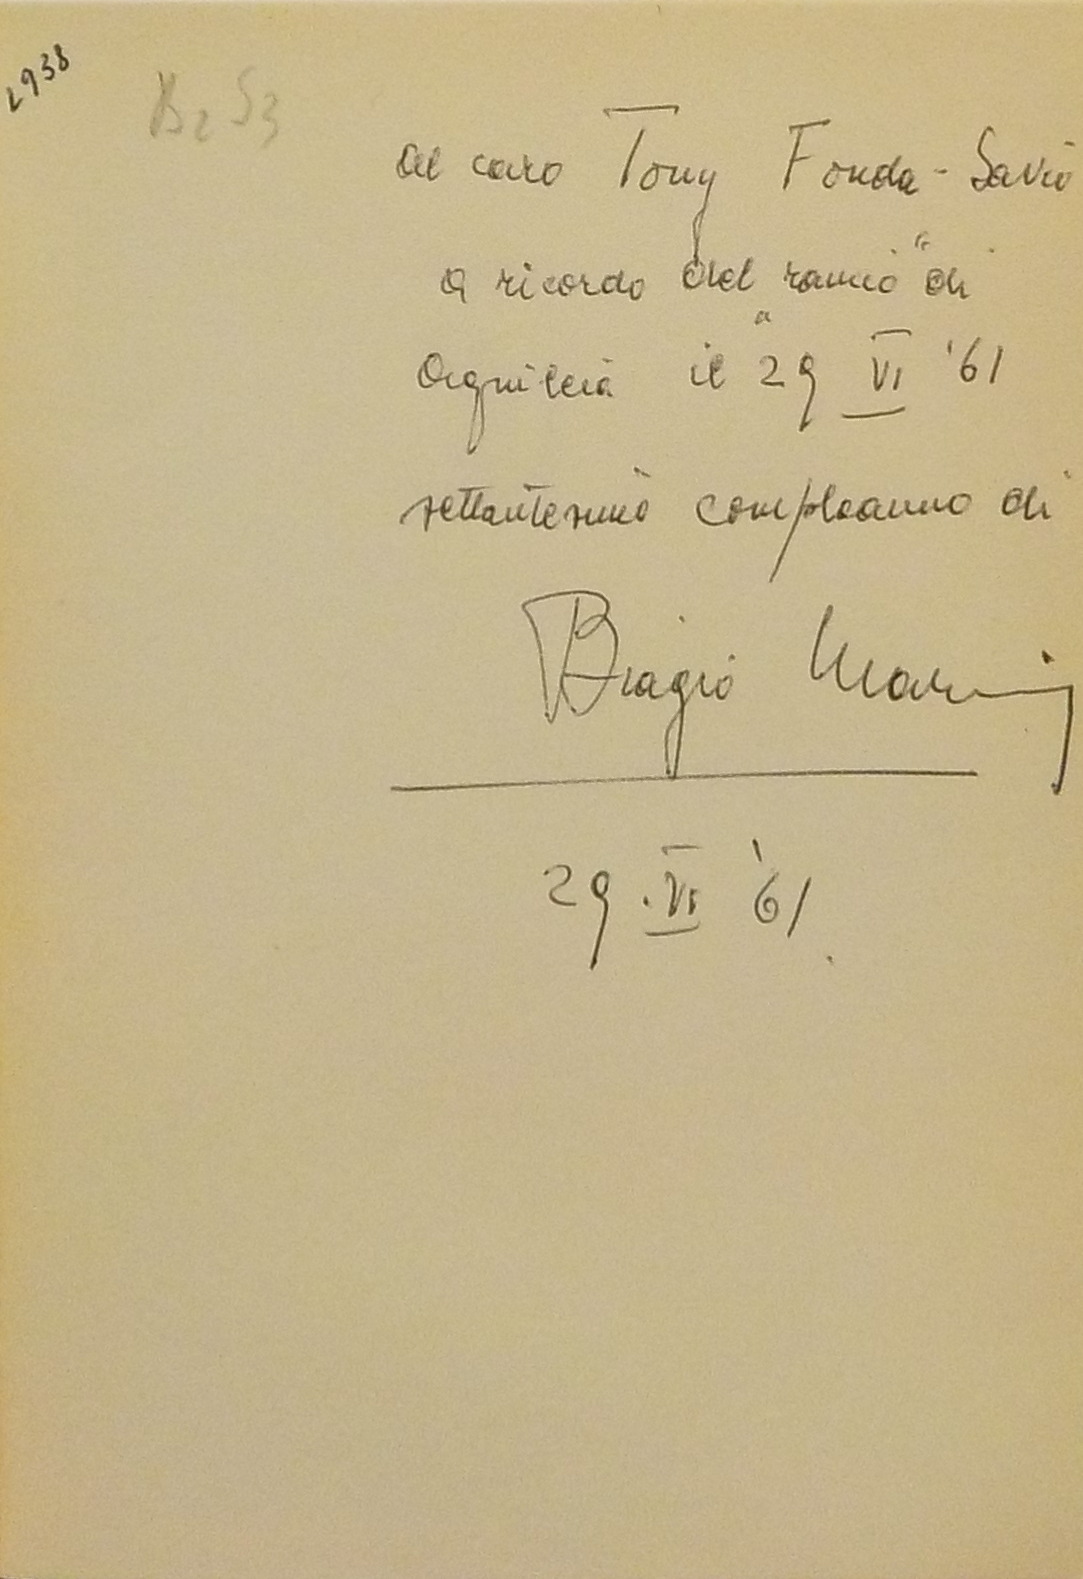 2938
B2 S3
al caro Tony Fonda-Savio
a ricordo del "di
Aquileia il "29 VI '61
settantesimo compleanno di
Biagio Marin
29.VI '61